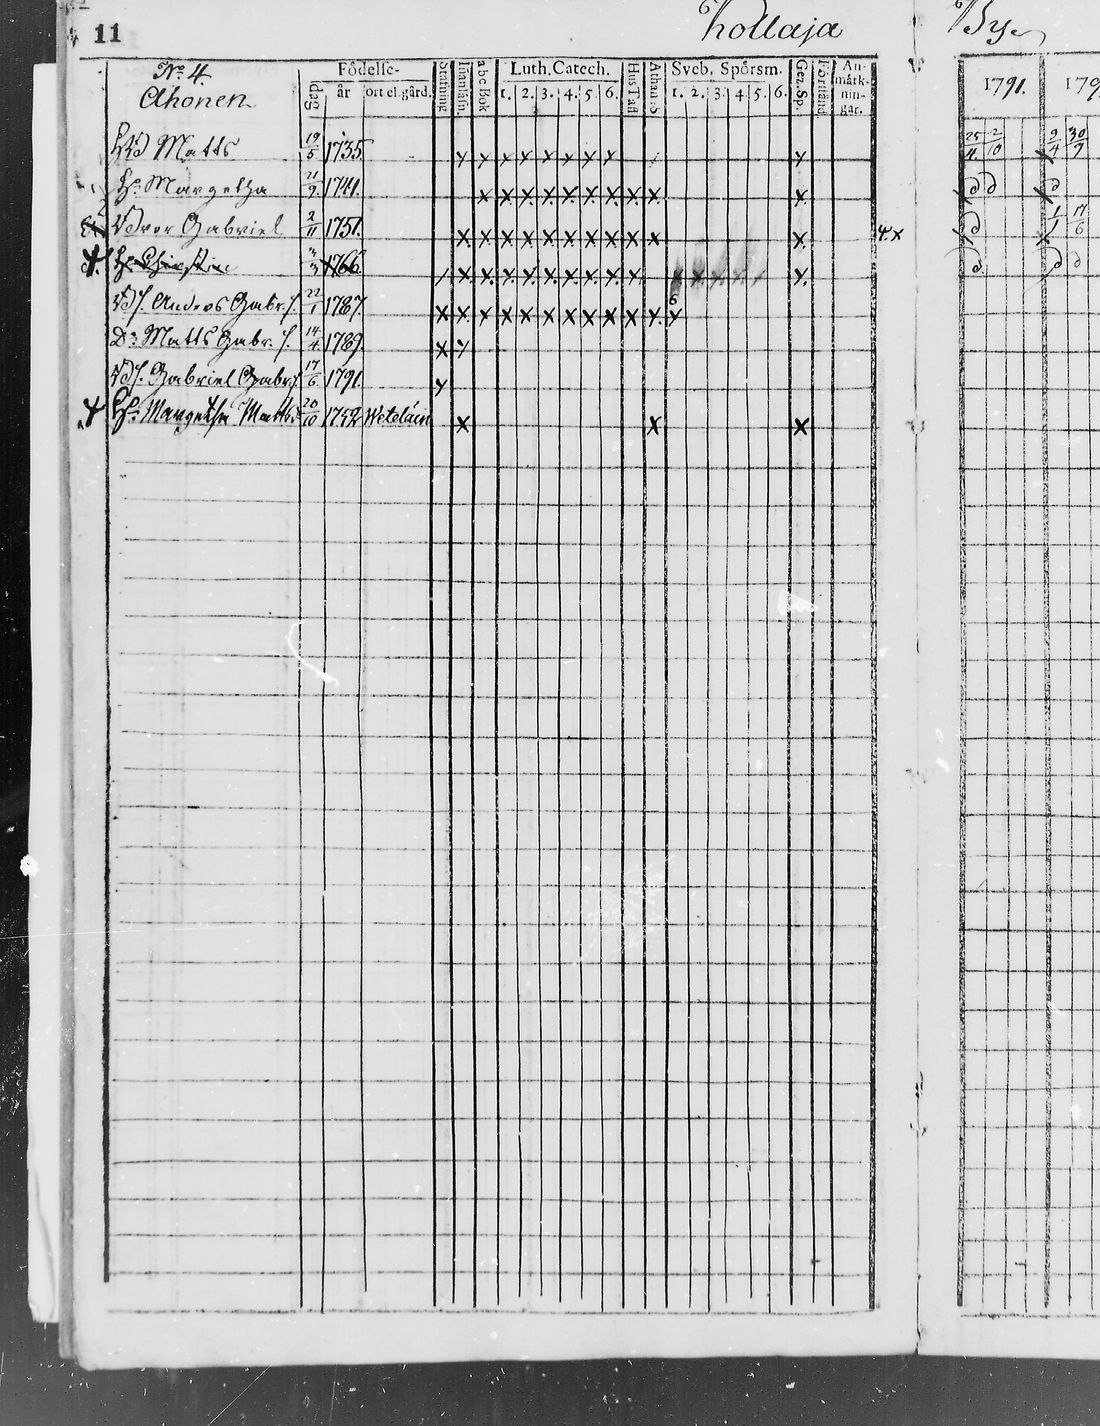 11 Kollaja By
No 4.
Ahonen
Födelse-
dag år ort el. gård.
Stafning Innanläsn. abc Bok Luth. Catech. 1. 2. 3. 4. 5. 6. Hus Tafl. Athan. S. Sveb. Spörsm. 1. 2. 3. 4. 5. 6. Ger. Sp. Förstånd An-märk-nin-gar.
1791. 179
25/4 2/10 9/4 30/9
Matts 19/5 1735. y y y x x x x x y
H:u Margetha 21/9 1741. x x x x x x x x x x
Gabriel 2/11 1751. x x x x x x x x x x x 4. x 1/1 17/6
H:u Christin 1766 x x x x x x x x x y.
Anders Gabr. s. 22/1 1787. x x x x x x x x x x y. 6 y
D:o Matts Gabr. s. 14/4 1789. x y
Gabriel Gabr. s. 17/6 1791. y
H:u Margetha Matts 20/10 1742 Weteläin x x x